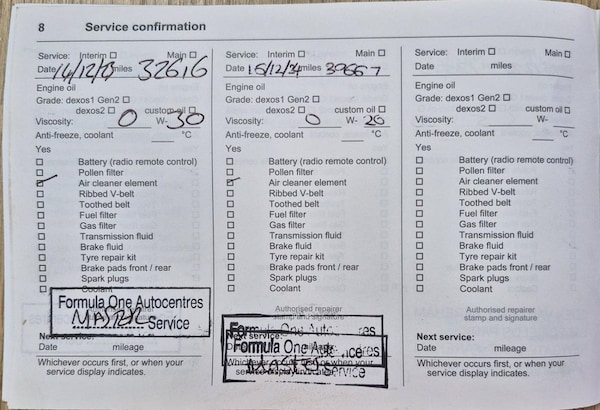 8 Service confirmation
Service: Interim ☐ Main ☐
Date miles 32616
Engine oil
Grade: dexos1 Gen2 ☐
dexos2 ☐ custom oil ☐
Viscosity: 0 W- 30
Anti-freeze, coolant °C
Yes
☐ Battery (radio remote control)
☐ Pollen filter
☑ Air cleaner element
☐ Ribbed V-belt
☐ Toothed belt
☐ Fuel filter
☐ Gas filter
☐ Transmission fluid
☐ Brake fluid
☐ Tyre repair kit
☐ Brake pads front / rear
☐ Spark plugs
☐ Coolant
Formula One Autocentres
MASTER Service
Next service:
Date mileage
Whichever occurs first, or when your
service display indicates.
Service: Interim ☐ Main ☐
Date miles 39667
Engine oil
Grade: dexos1 Gen2 ☐
dexos2 ☐ custom oil ☐
Viscosity: 0 W- 20
Anti-freeze, coolant °C
Yes
☐ Battery (radio remote control)
☐ Pollen filter
☑ Air cleaner element
☐ Ribbed V-belt
☐ Toothed belt
☐ Fuel filter
☐ Gas filter
☐ Transmission fluid
☐ Brake fluid
☐ Tyre repair kit
☐ Brake pads front / rear
☐ Spark plugs
☐ Coolant
Authorised repairer
stamp and signature
Formula One
Next service:
Formula One
Whichever
Service
Service: Interim ☐ Main ☐
Date miles
Engine oil
Grade: dexos1 Gen2 ☐
dexos2 ☐ custom oil ☐
Viscosity: W-
Anti-freeze, coolant °C
Yes
☐ Battery (radio remote control)
☐ Pollen filter
☐ Air cleaner element
☐ Ribbed V-belt
☐ Toothed belt
☐ Fuel filter
☐ Gas filter
☐ Transmission fluid
☐ Brake fluid
☐ Tyre repair kit
☐ Brake pads front / rear
☐ Spark plugs
☐ Coolant
Authorised repairer
stamp and signature
Next service:
Date mileage
Whichever occurs first, or when your
service display indicates.